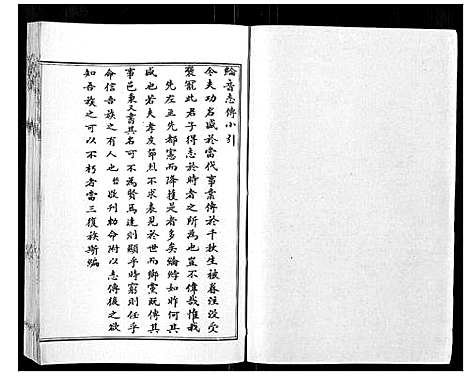 綸音志傳小引
今夫功名盛於當代事業傳於千秋生被眷注沒受
褒寵此君子得志於時者之所為也豈不偉哉惟我
先左丘先都憲而降獲是者多矣綸綍如昨何其
盛也若夫孝友節烈不求表見於世而鄉黨既傳其
事邑乘又書其名可不為賢焉達則顯乎時窮則任乎
命信吾族之有人也哲欲刊勅命附以志傳後之欲
知吾族之可以不朽者當三復族斯編